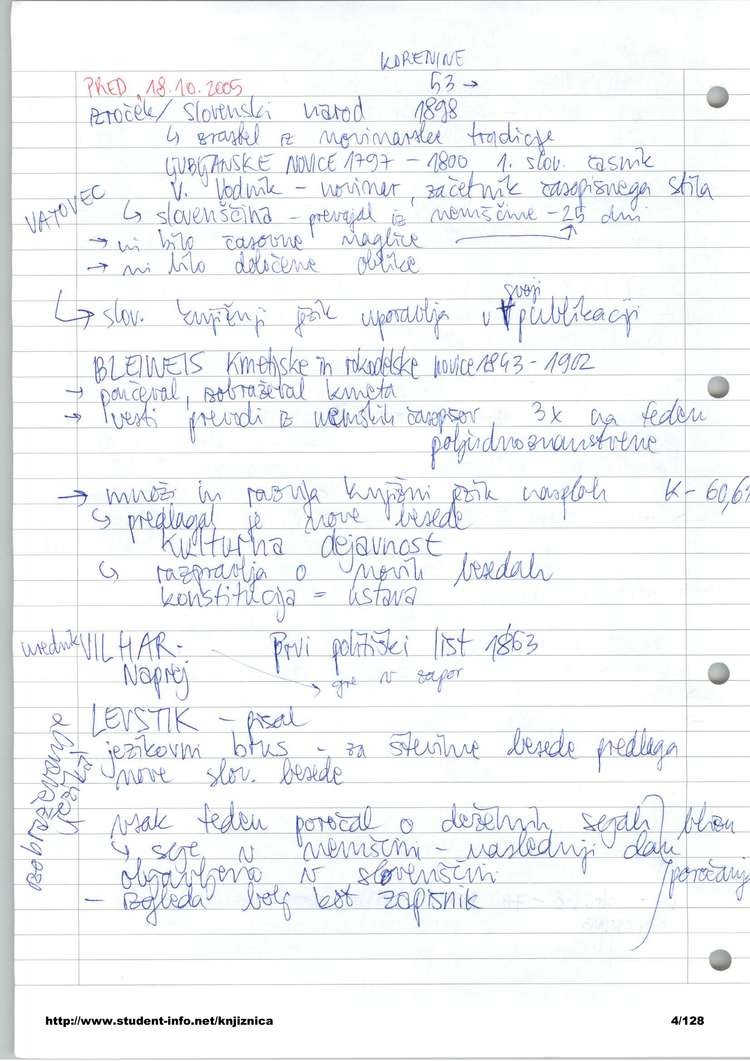 KORENINE
PRED, 18.10.2005 53 →
Izroček/ Slovenski narod 1898
↳ zrastel iz novinarske tradicije
LJUBLJANSKE NOVICE 1797 - 1800 1. slov. časnik
V. Vodnik - novinar, začetnik časopisnega stila
VATOVEC
↳ slovenščina - prevajal iz nemščine - 25 dni
→ ni bilo časovne naglice
→ ni bilo določene oblike
svoji
↳ slov. knjižnji jezik uporablja v publikaciji
BLEIWEIS Kmetijske in rokodelske novice 1843 - 1902
→ poučeval, izobraževal kmeta
→ vesti prevodi iz nemških časopisov 3x na teden
poljudnoznanstvene
→ množi in razvija knjižni jezik nasploh K - 60,61
↳ predlagal je nove besede
kulturna dejavnost
↳ razpravlja o novih besedah
konstitucija = ustava
urednik VILHAR - Prvi politiški list 1863
Naprej → gre v zapor
LEVSTIK - pisal
jezikovni brus - za številne besede predlaga
nove slov. besede
vsak teden poročal o deželnih sejah
↳ seje v nemščini - naslednji dan
objavljeno v slovenščini
poročanje
- Izgleda bolj kot zapisnik
http://www.student-info.net/knjiznica 4/128